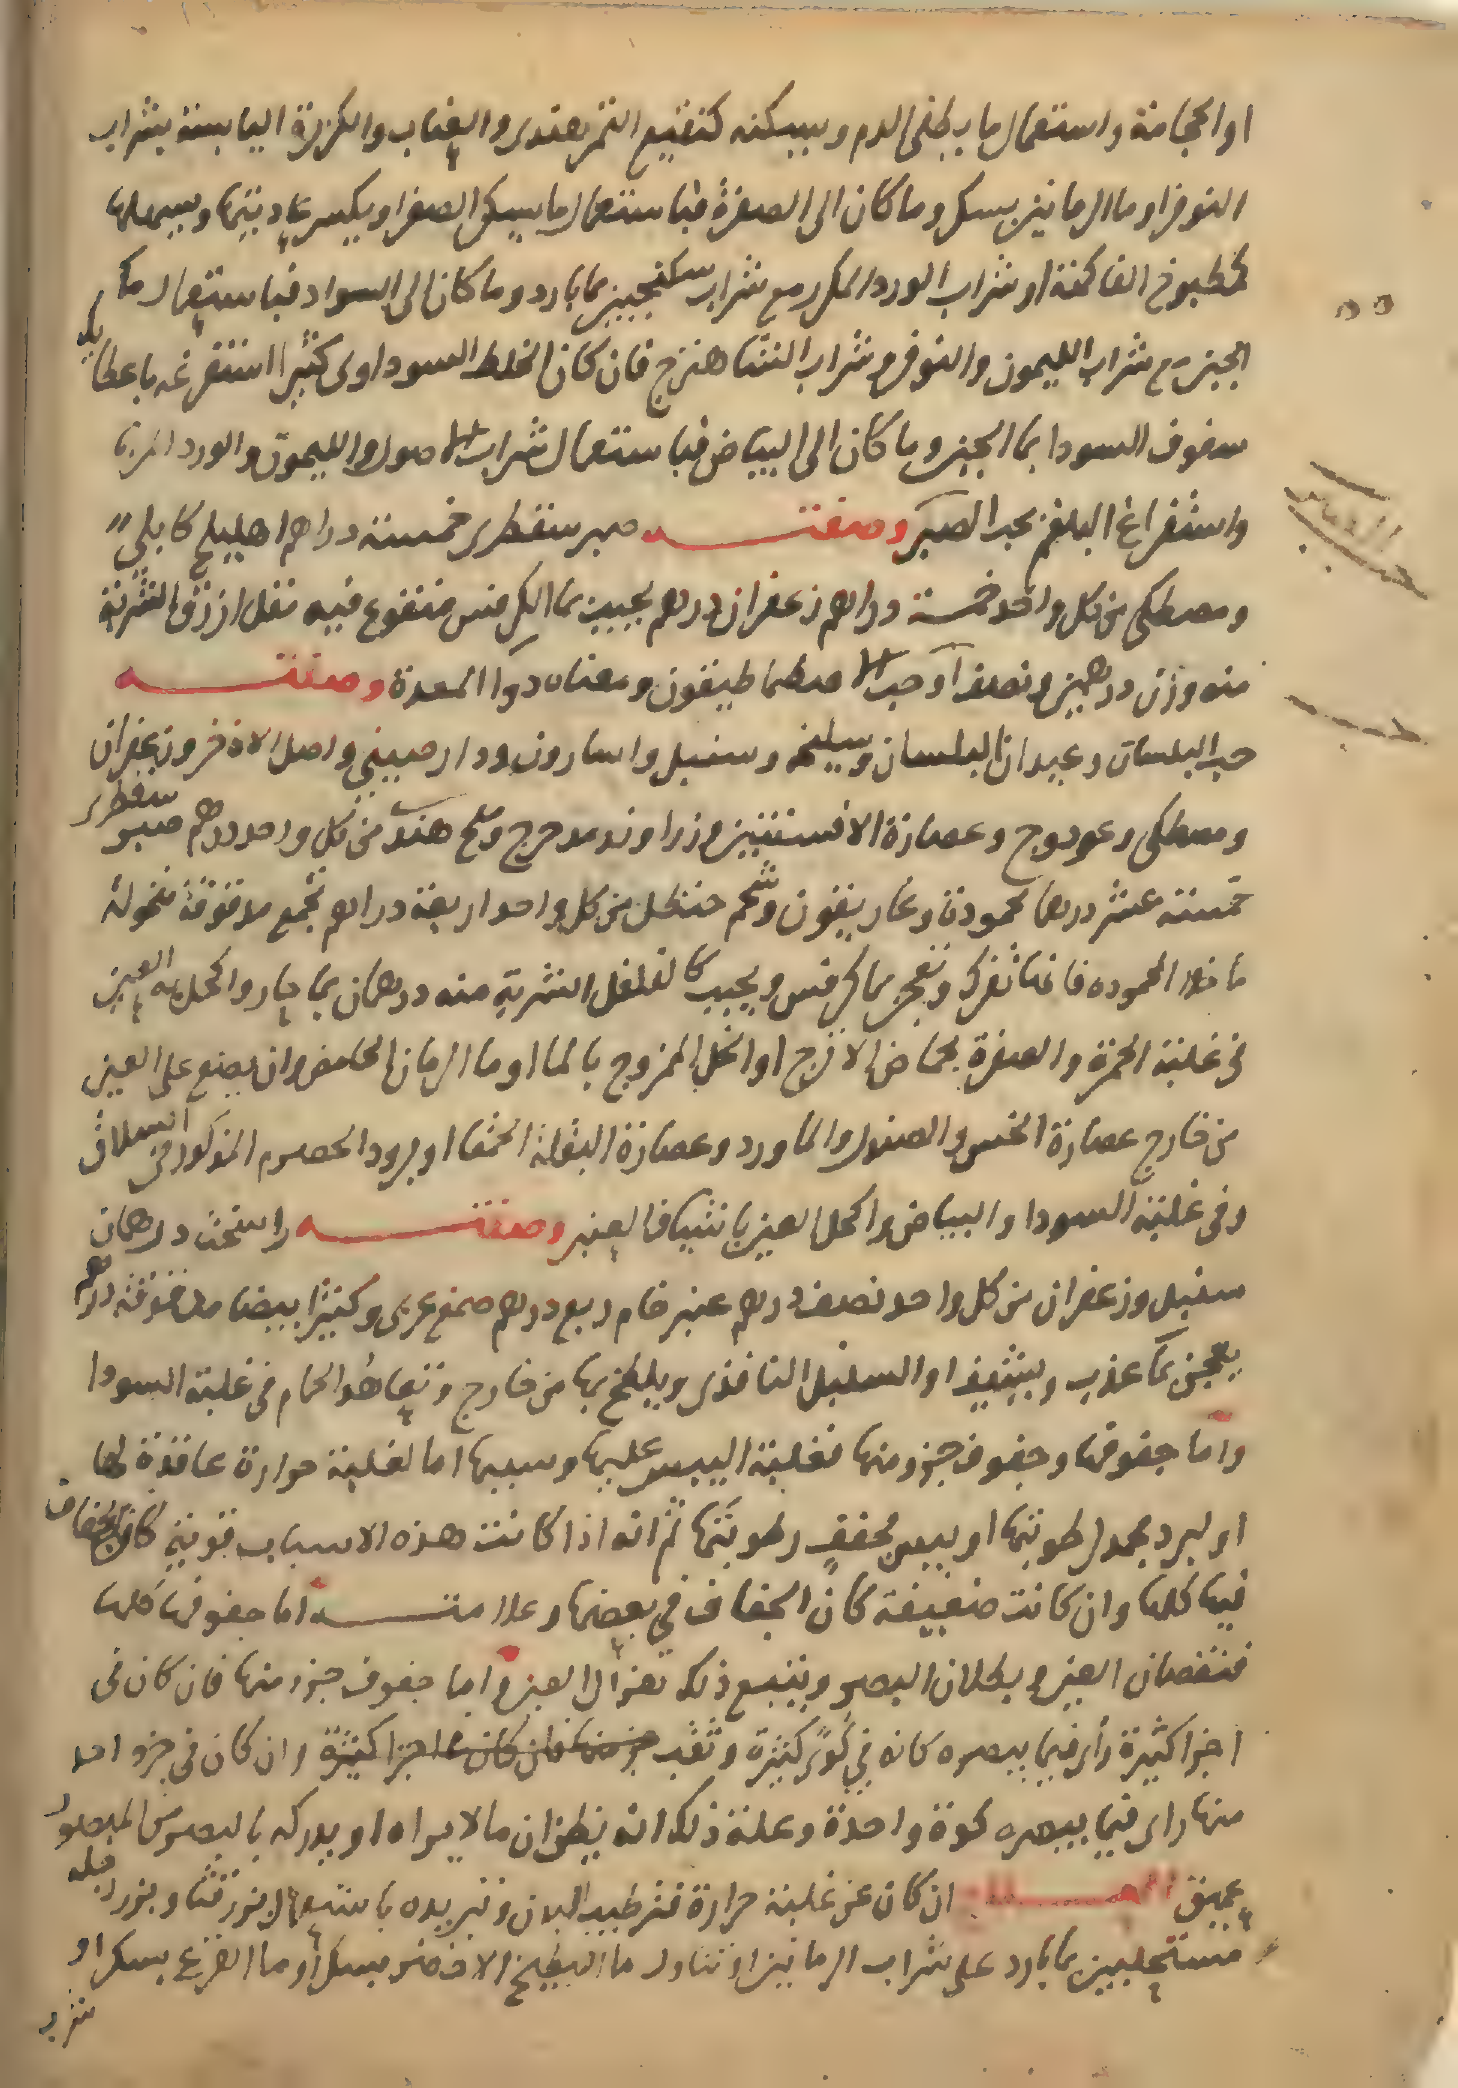 او الحجامة واستعمال ما يطفى الدم ويسكنه كنقيع التمرهندى والعناب والكزبرة اليابسة بشراب
النوفر او ما الرمانين بسكر وما كان الى الصفرة فباستعمال ما يسكن الصفرا ويكسر عاديتها ويسهلها
كمطبوخ الفاكهة او شراب الورد المكرر مع شراب سكنجبين بما بارد وما كان الى السواد فباستعمال ما
الجبن مع شراب الليمون والنوفر وشراب الشاهترج فان كان الخلط السوداوى كثيرا استفرغه باعطا
سفوف السودا بما الجبن وما كان الى البياض فباستعمال شراب الاصول والليمون والورد المربا
واستفراغ البلغم بحب الصبر وصفته صبر سقطرى خمسة دراهم اهليلج كابلى
ومصطكى من كل واحد خمسة دراهم زعفران درهم يحبب بما الكرفس منقوع فيه مقل ازرق الشربة
منه وزن درهمين ونصف او حب الاصطماطيقون ومعناه دوا المعدة وصفته
حب البلسان وعيدان البلسان وسليخه وسنبل واسارون ودارصينى واصل الاذخر وزعفران
ومصطكى وعود وج وعصارة الافسنتين وزراوند مدحرج وملح هندى من كل واحد درهم صبر سقطرى
خمسة عشر درهما محمودة وغاريقون وشحم حنظل من كل واحد اربعة دراهم تجمع مدقوقة منخولة
ما خلا المحموده فانها تفرك وتعجن بما كرفس ويحبب كالفلفل الشربة منه درهمان بما حار واكحل به العين
فى غلبة الحمرة والصفرة بحماض الاترج او الخل الممزوج بالما او ما الرمان الحامض وان يصنع على العين
من خارج عصارة الخس والصندل والماورد وعصارة البقلة الحمقا او برود الحصرم المذكور فى السلاق
وفى غلبة السودا والبياض واكحل العين باشياف العنبر وصفته راسخت درهمان
سنبل وزعفران من كل واحد نصف درهم عنبر خام ربع درهم صمغ عربى وكثيرا بيضا مدقوقة درهم
يعجن بما عذب ويشيف او السنبل النافذى ويلطخ بها من خارج وتعاهد الحمام فى غلبة السودا
واما جفوفها وجفوف جزو منها فغلبة اليبس عليها وسببها اما لغلبة حرارة عاقدة لها
او لبرد مجمد لرطوبتها او يبس مجفف رطوبتها ثم انه اذا كانت هذه الاسباب قوية كان الجفاف
فيها كلها وان كانت ضعيفة كان الجفاف فى بعضها وعلامته اما جفوفها كلها
فنقصان العين وبطلان البصر ويتبع ذلك هزال العين واما جفوف جزو منها فان كان فى
اجزا كثيرة رأى فيما يبصره كانه فى كوى كثيرة وثقب وان كان فى جزو احد
منها راى فيما يبصره كوة واحدة وعلة ذلك انه يظن ان ما لا يراه او يدركه بالبصر من المبصور
عميق العلاج ان كان عن غلبة حرارة فترطيب البدن وتبريده باستعمال بزر قثا وبزر رجله
مستحلبين بما بارد على شراب الرمانين او تناول ما البطيخ الاخضر بسكر او ما القرع بسكر او
شرب